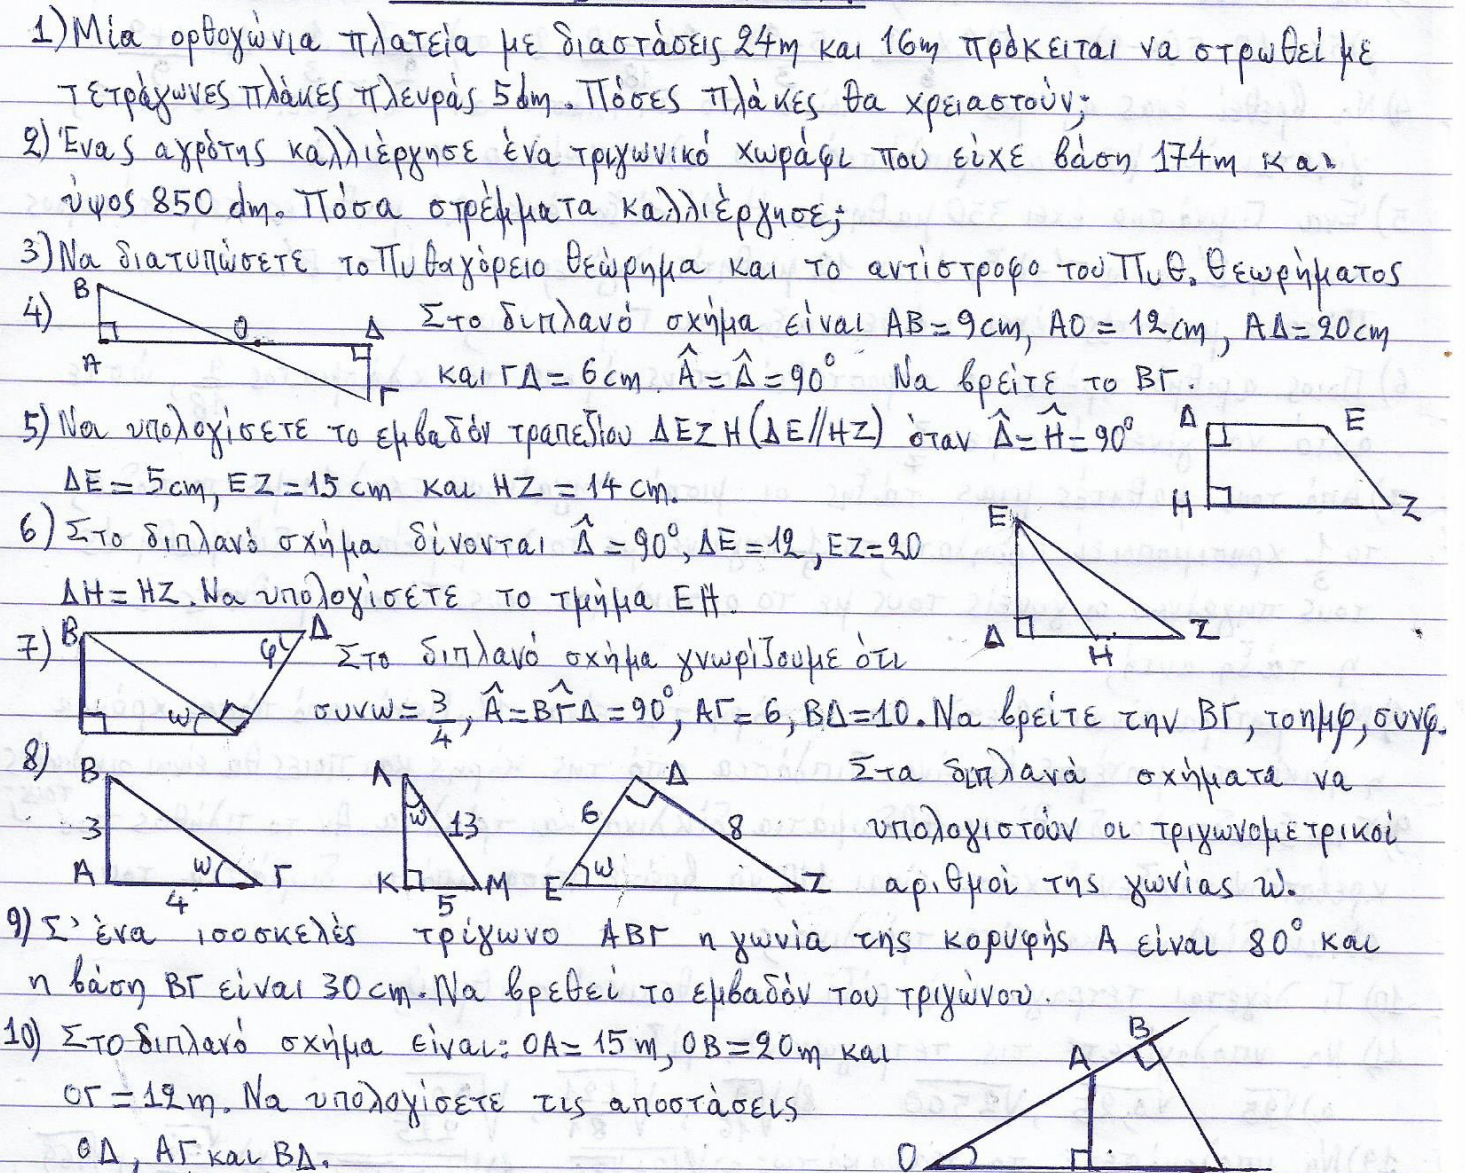 1) Μία ορθογώνια πλατεία με διαστάσεις 24m και 16m πρόκειται να στρωθεί με
τετράγωνες πλάκες πλευράς 5dm. Πόσες πλάκες θα χρειαστούν;
2) Ένας αγρότης καλλιέργησε ένα τριγωνικό χωράφι που είχε βάση 174m και
ύψος 850 dm. Πόσα στρέμματα καλλιέργησε;
3) Να διατυπώσετε το Πυθαγόρειο θεώρημα και το αντίστροφο του Πυθ. θεωρήματος
4) Β Ο Δ Α Γ Στο διπλανό σχήμα είναι ΑΒ=9cm, ΑΟ=12cm, ΑΔ=20cm
και ΓΔ=6cm Â=Δ̂=90° Να βρείτε το ΒΓ.
5) Να υπολογίσετε το εμβαδόν τραπεζίου ΔΕΖΗ (ΔΕ//ΗΖ) όταν Δ̂=Η̂=90°
ΔΕ=5cm, ΕΖ=15cm και ΗΖ=14cm.
Δ Ε Η Ζ
6) Στο διπλανό σχήμα δίνονται Δ̂=90°, ΔΕ=12, ΕΖ=20
ΔΗ=ΗΖ. Να υπολογίσετε το τμήμα ΕΗ
Ε Δ Η Ζ
7) Β Δ φ ω Στο διπλανό σχήμα γνωρίζουμε ότι
συνω=3/4, Â=ΒΓ̂Δ=90°, ΑΓ=6, ΒΔ=10. Να βρείτε την ΒΓ, το ημφ, συνφ.
8) Β 3 Α 4 ω Γ
Α ω 13 Κ 5 Μ
Δ 6 8 Ε ω Ζ
Στα διπλανά σχήματα να
υπολογιστούν οι τριγωνομετρικοί
αριθμοί της γωνίας ω.
9) Σ' ένα ισοσκελές τρίγωνο ΑΒΓ η γωνία της κορυφής Α είναι 80° και
η βάση ΒΓ είναι 30cm. Να βρεθεί το εμβαδόν του τριγώνου.
10) Στο διπλανό σχήμα είναι: ΟΑ=15m, ΟΒ=20m και
ΟΓ=12m. Να υπολογίσετε τις αποστάσεις
ΟΔ, ΑΓ και ΒΔ.
Β Α Ο